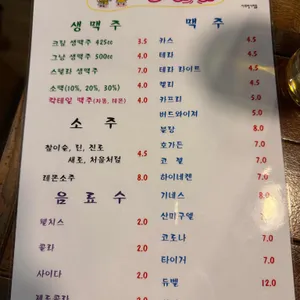 생맥주
크림 생맥주 425cc 3.5
그냥 생맥주 500cc 4.0
스텔라 생맥주 7.0
소맥(10%, 20%, 30%) 4.0
칵테일 맥주(자몽, 레몬) 4.0
소주
참이슬, 진, 진로
새로, 처음처럼 4.5
레몬소주 8.0
음료수
웰치스 2.0
콜라 2.0
사이다 2.0
제로콜라
맥주
카스 4.5
테라 4.5
테라 라이트 4.5
켈리 4.5
카프리 5.0
버드와이저 5.0
분담 8.0
호가든 7.0
코젤 7.0
하이네켄 7.0
기네스 8.0
산미구엘 7.0
코로나 7.0
타이거 7.0
듀벨 12.0